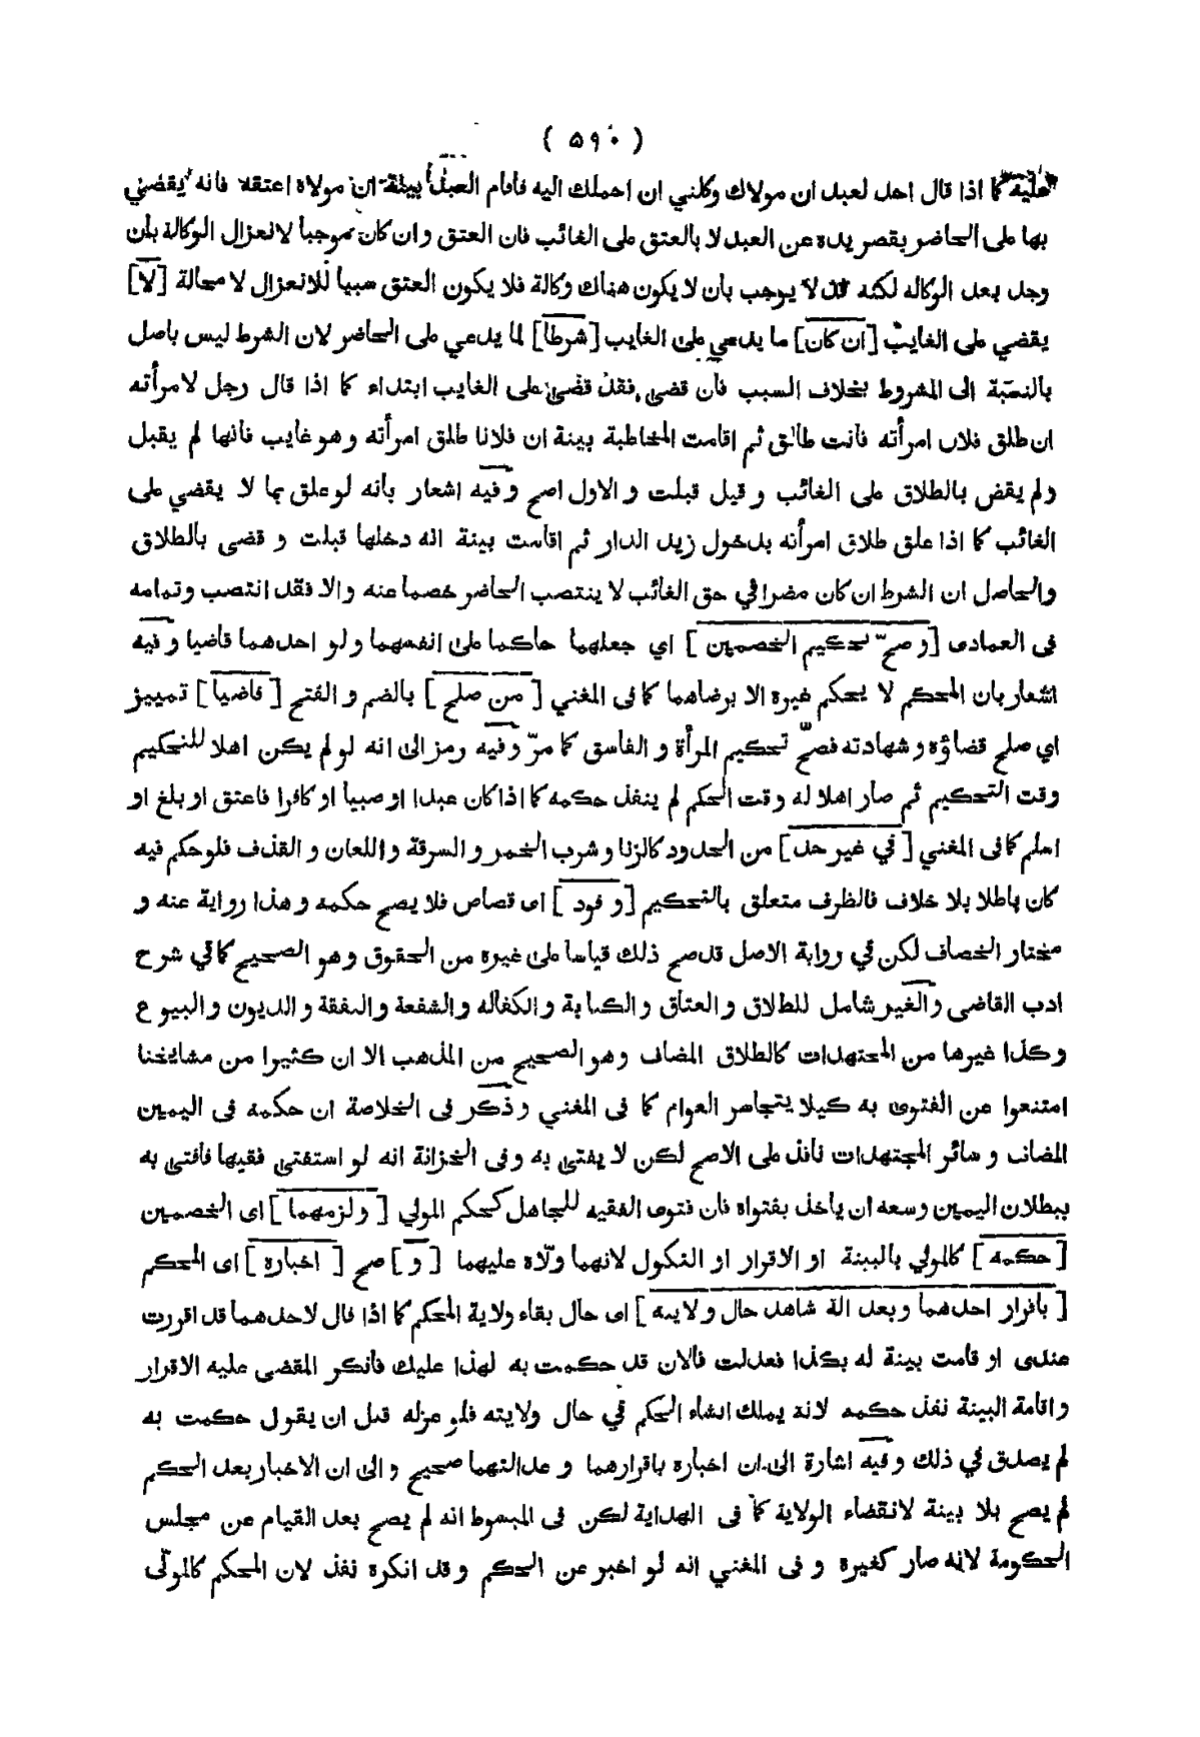 ( ٥٩٠ )
عليه كما اذا قال احد لعبد ان مولاك وكلني ان احملك اليه فاقام العبد بينة ان مولاه اعتقه فانه يقضي
بها على الحاضر بقصر يده عن العبد لا بالعتق على الغائب فان العتق وان كان موجبا لانعزال الوكالة بان
وجد بعد الوكاله لكنه قد لا يوجب بان لا يكون هناك وكالة فلا يكون العتق سببا للانعزال لا محالة [لا]
يقضي على الغايب [ان كان] ما يدعي على الغايب [شرطا] لما يدعي على الحاضر لان الشرط ليس باصل
بالنسبة الى المشروط بخلاف السبب فان قضى فقد قضى على الغايب ابتداء كما اذا قال رجل لامرأته
ان طلق فلان امرأته فانت طالق ثم اقامت المخاطبة بينة ان فلانا طلق امرأته وهو غايب فانها لم يقبل
ولم يقض بالطلاق على الغائب وقيل قبلت والاول اصح وفيه اشعار بانه لو علق بما لا يقضي على
الغائب كما اذا علق طلاق امرأته بدخول زيد الدار ثم اقامت بينة انه دخلها قبلت وقضى بالطلاق
والحاصل ان الشرط ان كان مضرا في حق الغائب لا ينتصب الحاضر خصما عنه والا فقد انتصب وتمامه
فى العمادى [وصحّ تحكيم الخصمين] اي جعلهما حاكما على انفسهما ولو احدهما قاضيا وفيه
اشعار بان المحكم لا يحكم غيره الا برضاهما كما فى المغني [من صلح] بالضم والفتح [قاضيا] تمييز
اي صلح قضاؤه وشهادته فصحّ تحكيم المرأة والفاسق كما مرّ وفيه رمز الى انه لو لم يكن اهلا للتحكيم
وقت التحكيم ثم صار اهلا له وقت الحكم لم ينفذ حكمه كما اذا كان عبدا او صبيا او كافرا فاعتق او بلغ او
اسلم كما فى المغني [في غير حد] من الحدود كالزنا وشرب الخمر والسرقة واللعان والقذف فلو حكم فيه
كان باطلا بلا خلاف فالظرف متعلق بالتحكيم [وقود] اى قصاص فلا يصح حكمه وهذا رواية عنه و
مختار الخصاف لكن في رواية الاصل قد صح ذلك قياسا على غيره من الحقوق وهو الصحيح كما في شرح
ادب القاضى والغير شامل للطلاق والعتاق والكتابة والكفاله والشفعة والنفقة والديون والبيوع
وكذا غيرها من المجتهدات كالطلاق المضاف وهو الصحيح من المذهب الا ان كثيرا من مشايخنا
امتنعوا عن الفتوى به كيلا يتجاسر العوام كما فى المغني وذكر فى الخلاصة ان حكمه فى اليمين
المضاف وسائر المجتهدات نافذ على الاصح لكن لا يفتى به وفى الخزانة انه لو استفتى فقيها فافتى به
ببطلان اليمين وسعه ان ياخذ بفتواه فان فتوى الفقيه للجاهل كحكم المولي [ولزمهما] اى الخصمين
[حكمه] كالمولي بالبينة او الاقرار او النكول لانهما ولّاه عليهما [و] صح [اخباره] اى المحكم
[باقرار احدهما وبعدالة شاهد حال ولايته] اى حال بقاء ولاية المحكم كما اذا قال لاحدهما قد اقررت
عندى او قامت بينة له بكذا فعدلت فالان قد حكمت به لهذا عليك فانكر المقضى عليه الاقرار
واقامة البينة نفذ حكمه لانه يملك انشاء الحكم في حال ولايته فلو عزله قبل ان يقول حكمت به
لم يصدق في ذلك وفيه اشارة الى ان اخباره باقرارهما وعدالتهما صحيح والى ان الاخبار بعد الحكم
لم يصح بلا بينة لانقضاء الولاية كما فى الهداية لكن فى المبسوط انه لم يصح بعد القيام عن مجلس
الحكومة لانه صار كغيره وفى المغني انه لو اخبر عن الحكم وقد انكره نفذ لان المحكم كالمولّى